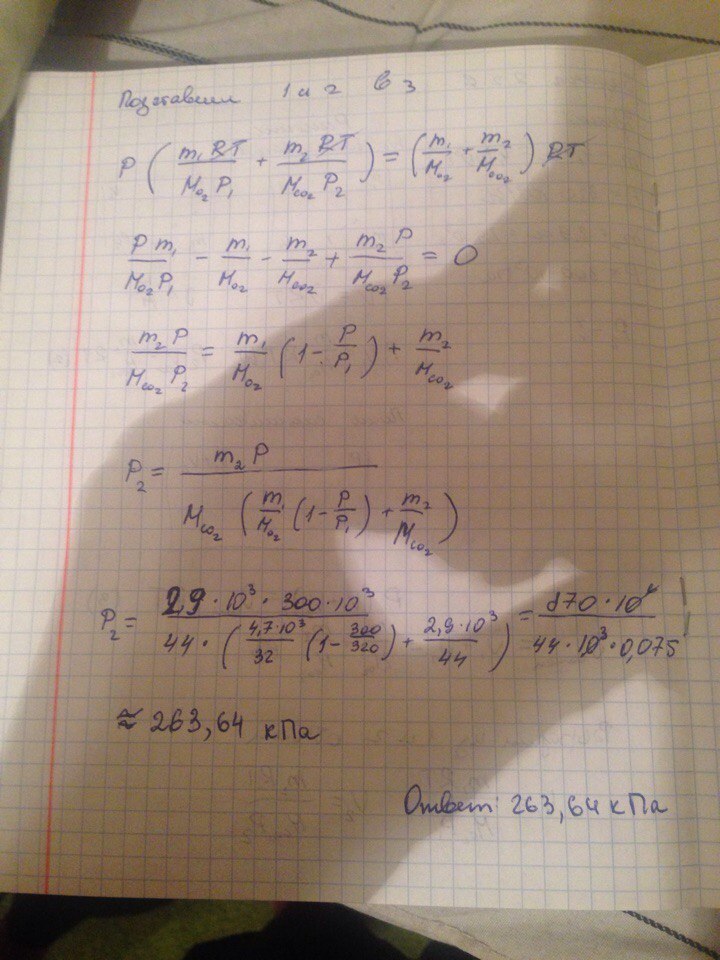 Подставим 1 и 2 в 3
P (m₁RT / M_O₂ P₁ + m₂ RT / M_CO₂ P₂) = (m₁ / M_O₂ + m₂ / M_CO₂) RT
P m₁ / M_O₂ P₁ - m₁ / M_O₂ - m₂ / M_CO₂ + m₂ P / M_CO₂ P₂ = 0
m₂ P / M_CO₂ P₂ = m₁ / M_O₂ (1 - P / P₁) + m₂ / M_CO₂
P₂ = m₂ P / M_CO₂ (m₁ / M_O₂ (1 - P / P₁) + m₂ / M_CO₂)
P₂ = 2,9 · 10³ · 300 · 10³ / 44 · (4,7 · 10³ / 32 (1 - 300 / 320) + 2,9 · 10³ / 44) = 870 · 10⁶ / 44 · 10³ · 0,075
≈ 263,64 кПа
Ответ: 263,64 кПа